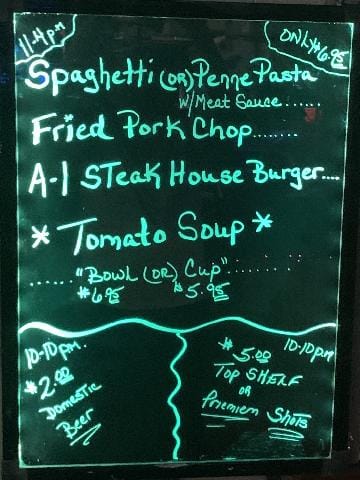 11-4pm
ONLY $6.95
Spaghetti (OR) Penne Pasta
w/Meat Sauce......
Fried Pork Chop........
A-1 STeak House Burger....
* Tomato Soup *
......"Bowl (OR) Cup"...........
$6.95 $5.95
10-10pm.
$2.00
Domestic
Beer
10-10pm
$5.00
Top SHELF
OR
Priemiem Shots